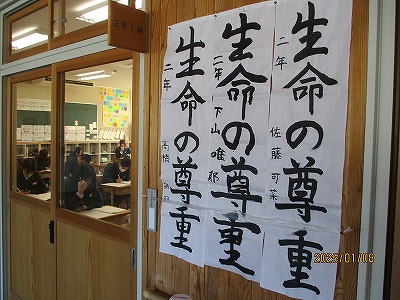 2年1組
生命の尊重
二年 佐藤可菜
生命の尊重
二年 下山唯那
生命の尊重
二年 高橋
2025/01/08